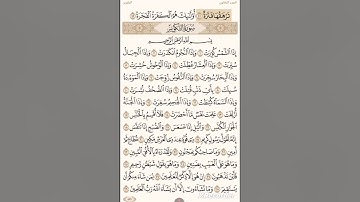 تَرْهَقُهَا قَتَرَةٌ ٤١ أُوْلَٰٓئِكَ هُمُ ٱلْكَفَرَةُ ٱلْفَجَرَةُ ٤٢
سُورَةُ التَّكْوِيرِ
بِسْمِ ٱللَّهِ ٱلرَّحْمَٰنِ ٱلرَّحِيمِ
إِذَا ٱلشَّمْسُ كُوِّرَتْ ١ وَإِذَا ٱلنُّجُومُ ٱنكَدَرَتْ ٢ وَإِذَا ٱلْجِبَالُ
سُيِّرَتْ ٣ وَإِذَا ٱلْعِشَارُ عُطِّلَتْ ٤ وَإِذَا ٱلْوُحُوشُ حُشِرَتْ ٥
وَإِذَا ٱلْبِحَارُ سُجِّرَتْ ٦ وَإِذَا ٱلنُّفُوسُ زُوِّجَتْ ٧ وَإِذَا ٱلْمَوْءُۥدَةُ
سُئِلَتْ ٨ بِأَيِّ ذَنۢبٍ قُتِلَتْ ٩ وَإِذَا ٱلصُّحُفُ نُشِرَتْ ١٠
وَإِذَا ٱلسَّمَآءُ كُشِطَتْ ١١ وَإِذَا ٱلْجَحِيمُ سُعِّرَتْ ١٢ وَإِذَا ٱلْجَنَّةُ
أُزْلِفَتْ ١٣ عَلِمَتْ نَفْسٌ مَّآ أَحْضَرَتْ ١٤ فَلَآ أُقْسِمُ بِٱلْخُنَّسِ ١٥
ٱلْجَوَارِ ٱلْكُنَّسِ ١٦ وَٱلَّيْلِ إِذَا عَسْعَسَ ١٧ وَٱلصُّبْحِ إِذَا تَنَفَّسَ ١٨
إِنَّهُۥ لَقَوْلُ رَسُولٍ كَرِيمٍ ١٩ ذِى قُوَّةٍ عِندَ ذِى ٱلْعَرْشِ مَكِينٍ ٢٠ مُّطَاعٍ ثَمَّ
أَمِينٍ ٢١ وَمَا صَاحِبُكُم بِمَجْنُونٍ ٢٢ وَلَقَدْ رَءَاهُ بِٱلْأُفُقِ ٱلْمُبِينِ ٢٣
وَمَا هُوَ عَلَى ٱلْغَيْبِ بِضَنِينٍ ٢٤ وَمَا هُوَ بِقَوْلِ شَيْطَٰنٍ رَّجِيمٍ ٢٥
فَأَيْنَ تَذْهَبُونَ ٢٦ إِنْ هُوَ إِلَّا ذِكْرٌ لِّلْعَٰلَمِينَ ٢٧ لِمَن شَآءَ مِنكُمْ أَن
يَسْتَقِيمَ ٢٨ وَمَا تَشَآءُونَ إِلَّآ أَن يَشَآءَ ٱللَّهُ رَبُّ ٱلْعَٰلَمِينَ ٢٩